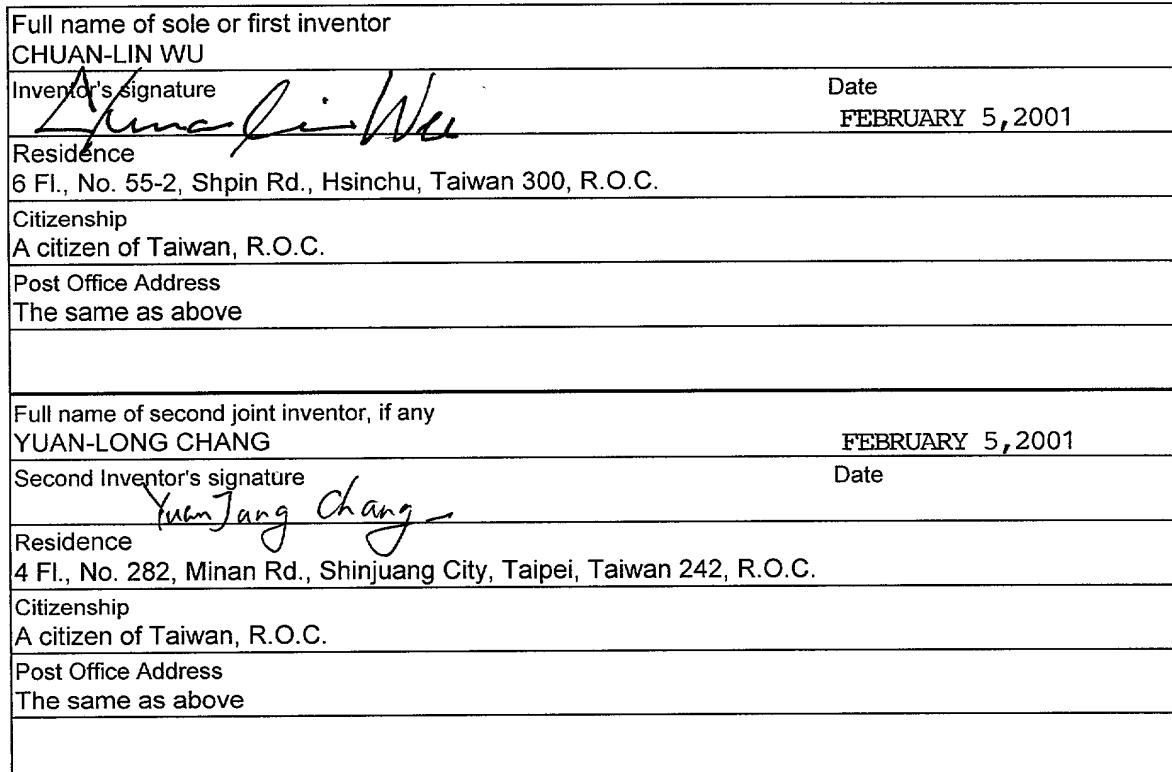 Full name of sole or first inventor
CHUAN-LIN WU
Inventor's signature Date
Chuan-lin Wu FEBRUARY 5,2001
Residence
6 Fl., No. 55-2, Shpin Rd., Hsinchu, Taiwan 300, R.O.C.
Citizenship
A citizen of Taiwan, R.O.C.
Post Office Address
The same as above
Full name of second joint inventor, if any
YUAN-LONG CHANG FEBRUARY 5,2001
Second Inventor's signature Date
Yuan Chang
Residence
4 Fl., No. 282, Minan Rd., Shinjuang City, Taipei, Taiwan 242, R.O.C.
Citizenship
A citizen of Taiwan, R.O.C.
Post Office Address
The same as above